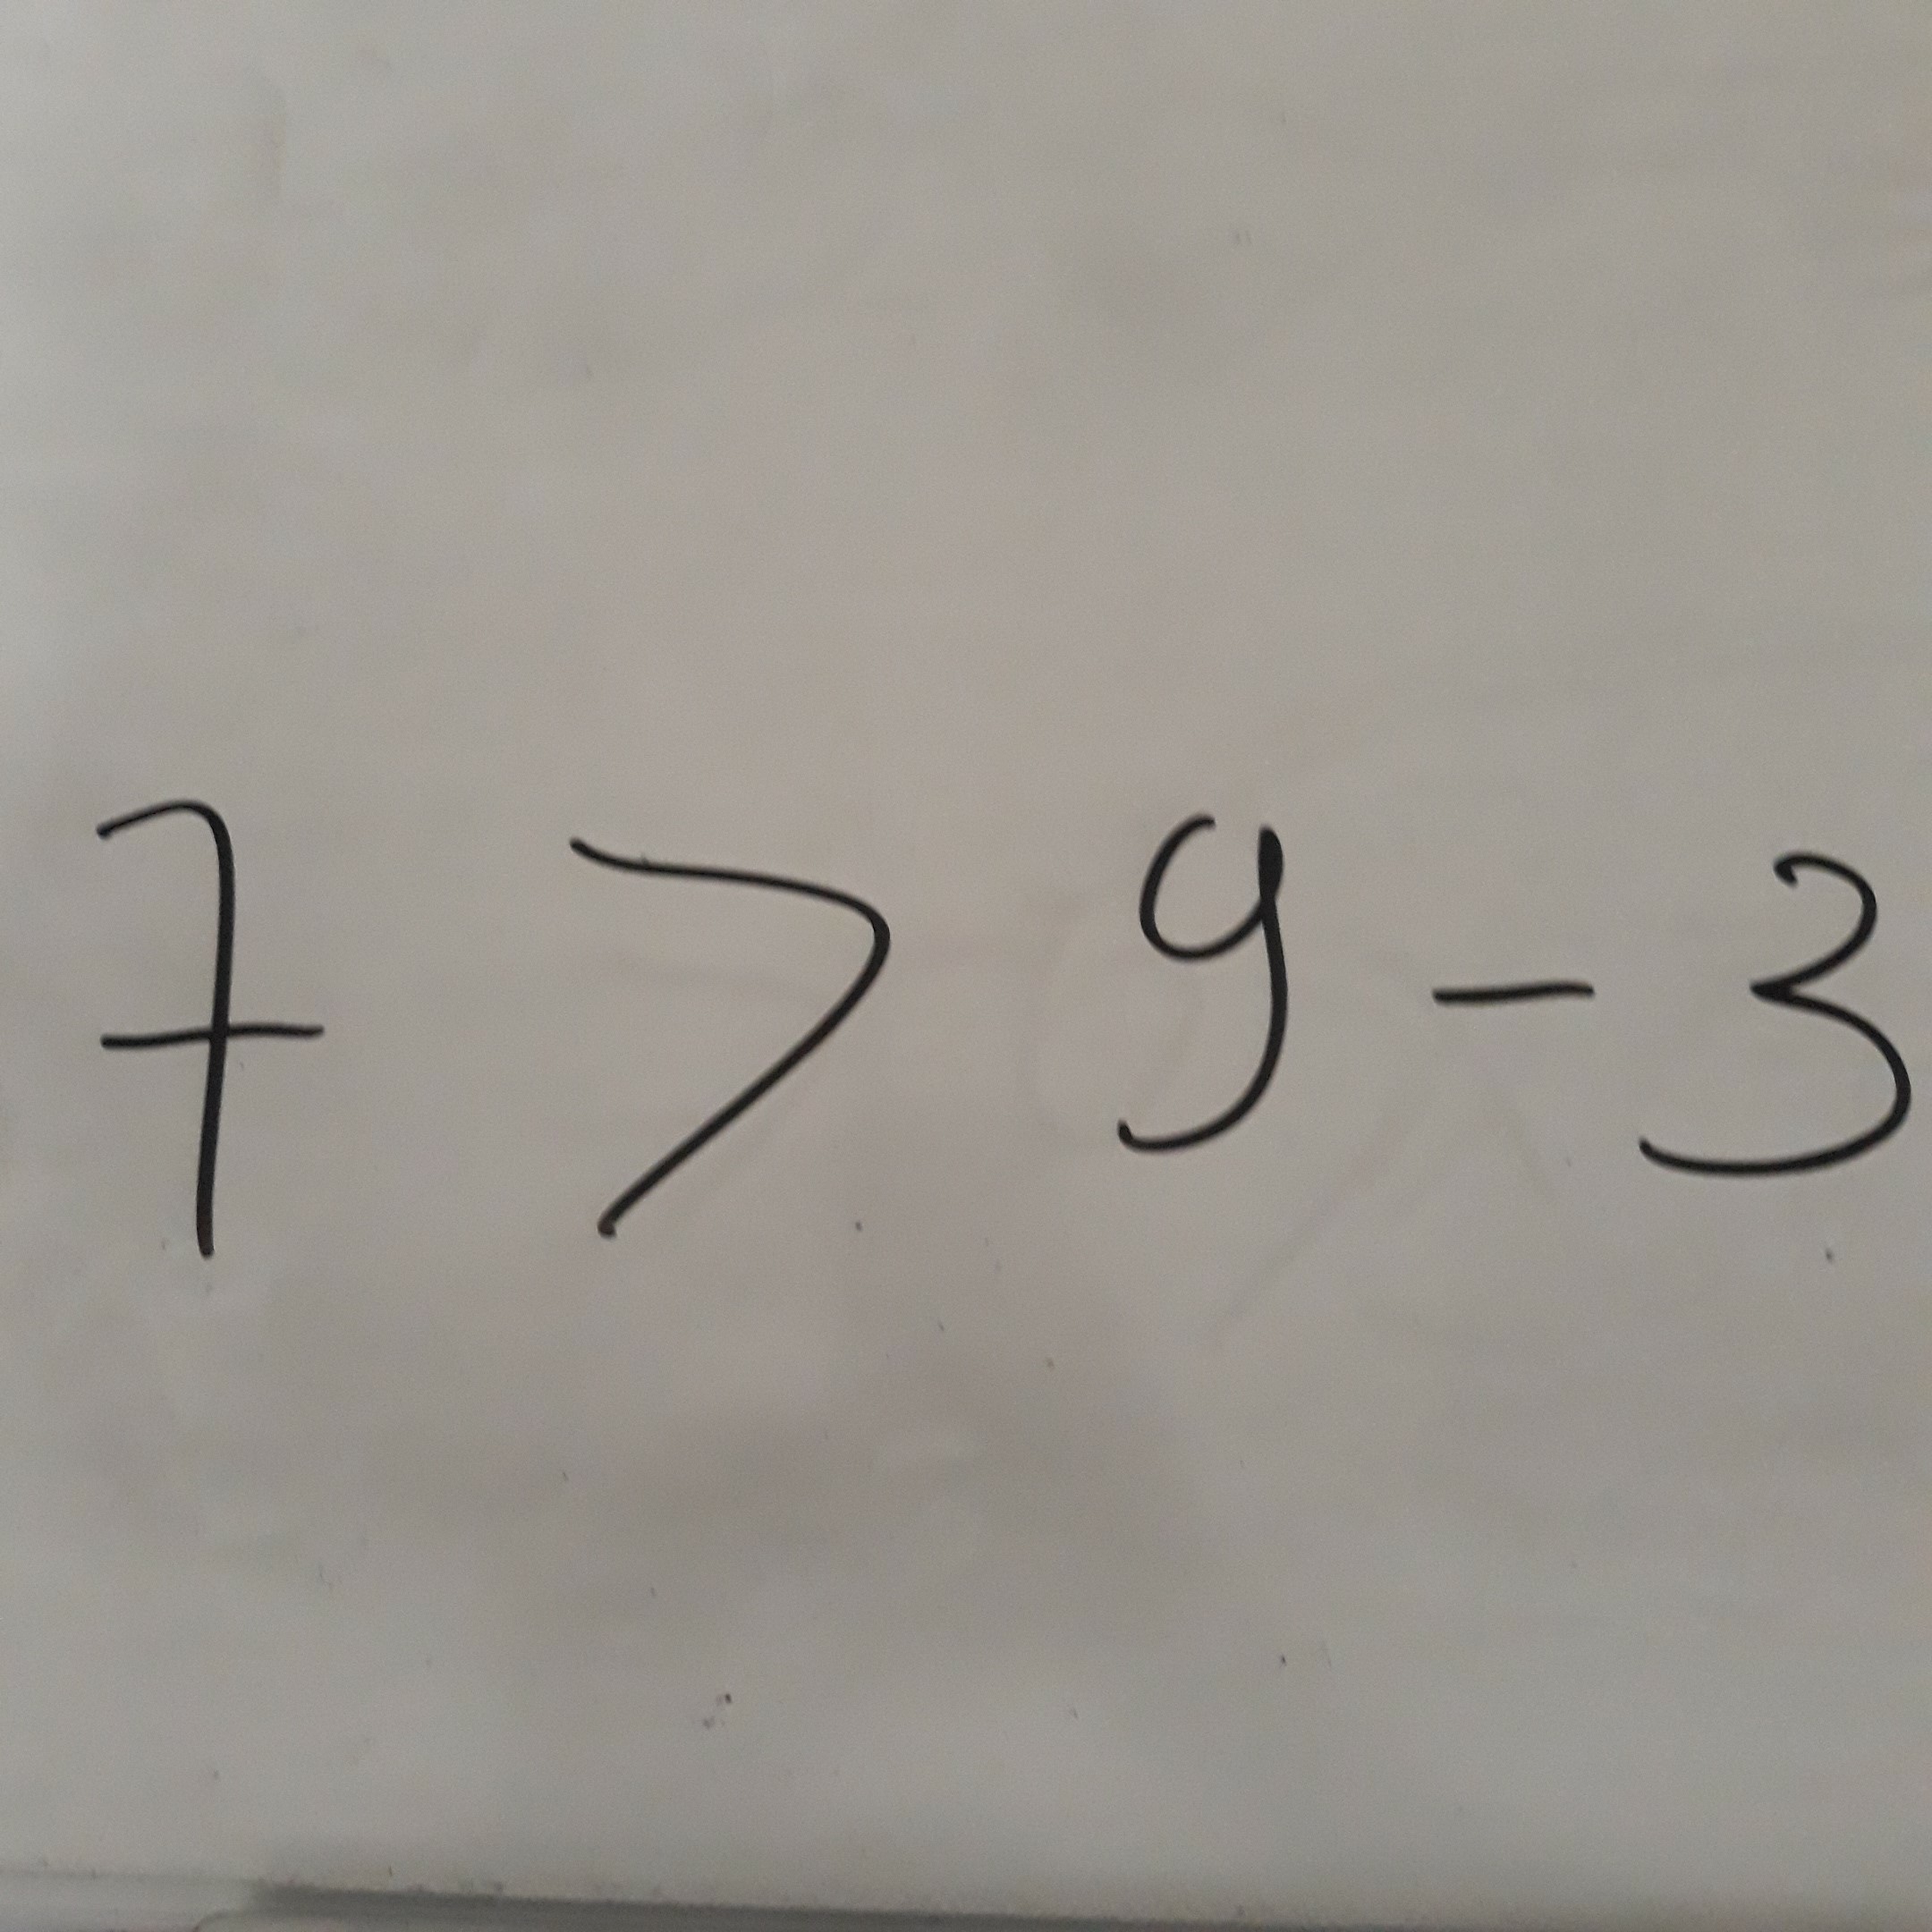 7 > 9 - 3